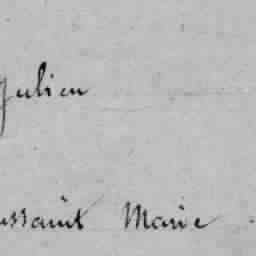 Julien
ussaint Marie